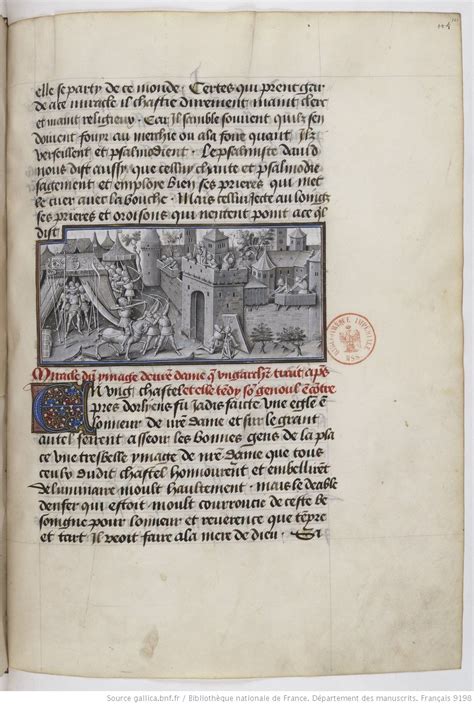 elle se party de ce monde. Certes qui prent gar
de a ce miracle il chastie durement maint clerc
et maint religieux. Car il samble souvent quilz sen
doivent fouyr au merchie ou a la foire quant Ilz
verseillent et psalmodient. Le psalmiste david
nous dist aussy que celluy chante et psalmodie
sagement et employe bien ses prieres qui met
le cuer avec la bouche. Mais cellui Jecte au loing
ses prieres et oroisons qui nentent point a ce ql
dist
Miracle dun ymage de nre dame q ung archr tiroit apes
et elle tedy so genoul contre
En ung chastel
pres dorliens fu Jadis faicte une eglē en
lonneur de nre dame et sur le grant
autel firent asseoir les bonnes gens de la pla
ce une tresbelle ymage de nre dame que tous
ceulx dudit chastel honnourent et embellirent
de luminaire moult haultement. mais le deable
denfer qui estoit moult courroucie de ceste be
soingne pour lonneur et reverence que tempre
et tart Il veoit faire a la mere de dieu. Si
Source gallica.bnf.fr / Bibliothèque nationale de France. Département des manuscrits. Français 9198